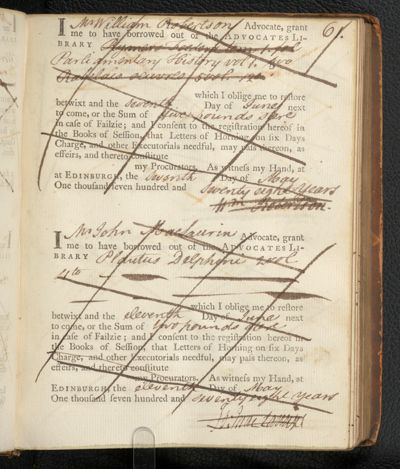 61.
I Mr William Robertson Advocate, grant
me to have borrowed out of the ADVOCATES LI-
BRARY
Parliamentary History vol 1. two
which I oblige me to restore
betwixt and the seventh Day of June next
to come, or the Sum of five pounds ster
in case of Failzie; and I consent to the registration hereof in
the Books of Session, that Letters of Horning on six Days
Charge, and other Executorials needful, may pass thereon, as
effeirs, and thereto constitute
my Procurators. As witness my Hand, at
at EDINBURGH, the seventh Day of May
One thousand seven hundred and Seventy eight Years
Wm Robertson.
I Mr John Maclaurin Advocate, grant
me to have borrowed out of the ADVOCATES LI-
BRARY Plautus Delphini 2 vol
4to
which I oblige me to restore
betwixt and the eleventh Day of June next
to come, or the Sum of two pounds ster
in case of Failzie; and I consent to the registration hereof in
the Books of Session, that Letters of Horning on six Days
Charge, and other Executorials needful, may pass thereon, as
effeirs, and thereto constitute
my Procurators. As witness my Hand, at
EDINBURGH, the eleventh Day of May
One thousand seven hundred and Seventy eight Years